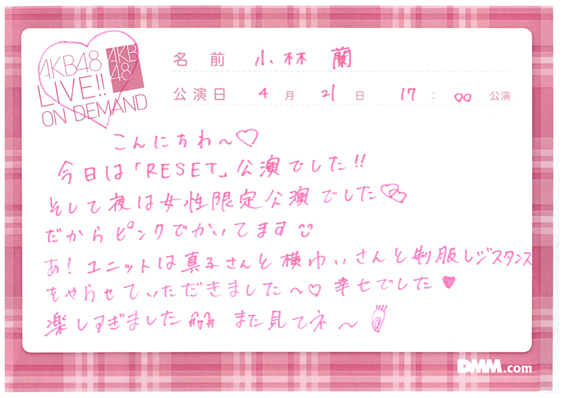 AKB48
LIVE!!
ON DEMAND
AKB
48
名前 小林 蘭
公演日 4月21日 17:00 公演
こんにちわ〜♡
今日は「RESET」公演でした!!
そして夜は女性限定公演でした♡
だからピンクでかいてます
あ!ユニットは真子さんと横ゆいさんと制服レジスタンス
をやらせていただきました〜♡ 幸せでした♥
楽しすぎました また見てネ〜
DMM.com